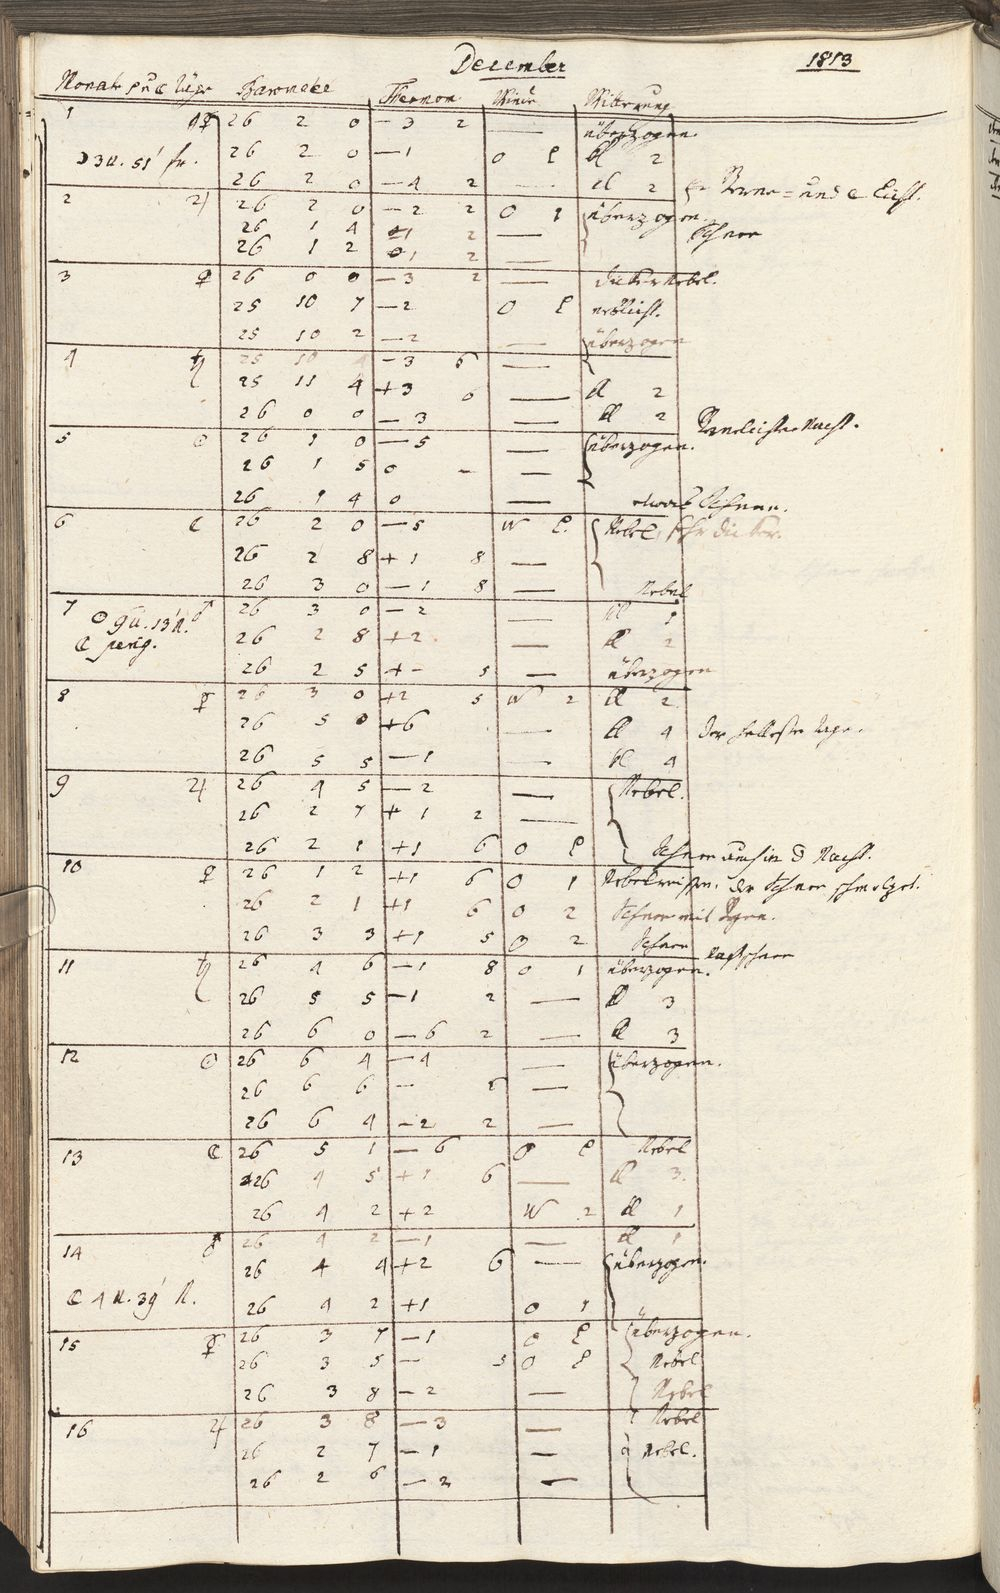 December 1813
Monats und Tage Barometer Thermom Winde Witterung
1 ☿ 26 2 0 — 3 2 — überzogen.
☽ 3 U. 51' fr. 26 2 0 — 1 O 1 kl 2
26 2 0 — 4 2 — kl 2 und
2 ♃ 26 2 0 — 2 2 O 1 überzogen.
26 1 4 1 2 — Schnee
26 1 2 1 2 —
3 ♀ 26 0 0 — 3 2 — dicker Nebel.
25 10 7 — 2 O 1
25 10 2 — 2 — überzogen
4 ♄ 25 10 4 — 3 5 —
25 11 4 + 3 6 — kl 2
26 0 0 — 3 — kl 2 Nacht.
5 ☉ 26 1 0 — 5 — überzogen.
26 1 5 0 - —
26 1 4 0 — etwas Schnee.
6 ☾ 26 2 0 — 5 W 1. Nebel, sehr dicker.
26 2 8 + 1 8 —
26 3 0 — 1 8 — Nebel
7 ♂ 26 3 0 — 2 — kl 1
9 U. 13' N. 26 2 8 + 2 — kl 2
☾ perig. 26 2 5 + - 5 — überzogen
8 ☿ 26 3 0 + 2 5 W 2 kl 2
26 5 0 + 6 — kl 4 der helleste Tage.
26 5 5 — 1 — kl 4
9 ♃ 26 4 5 — 2 — Nebel.
26 2 7 + 1 2 —
26 2 1 + 1 6 O 1 Schnee Nacht.
10 ♀ 26 1 2 + 1 6 O 1 der Schnee schmelzet.
26 2 1 + 1 6 O 2 Schnee mit Regen.
26 3 3 + 1 5 O 2 Schnee
11 ♄ 26 4 6 — 1 8 O 1 überzogen.
26 5 5 — 1 2 — kl 3
26 6 0 — 6 2 — kl 3
12 ☉ 26 6 4 — 4 — überzogen.
26 6 6 — —
26 6 4 — 2 2 —
13 ☾ 26 5 1 — 6 O 1 Nebel
26 4 5 + 1 6 — kl 3.
26 4 2 + 2 W 2 kl 1
14 ♂ 26 4 2 — 1 — kl 1
26 4 4 + 2 6 — überzogen.
☾ 4 U. 39' N. 26 4 2 + 1 O 1
15 ☿ 26 3 7 — 1 O 1 überzogen.
26 3 5 — 5 O 1 Nebel
26 3 8 — 2 — Nebel
16 ♃ 26 3 8 — 3 — Nebel
26 2 7 — 1 — Nebel.
26 2 6 — 2 —